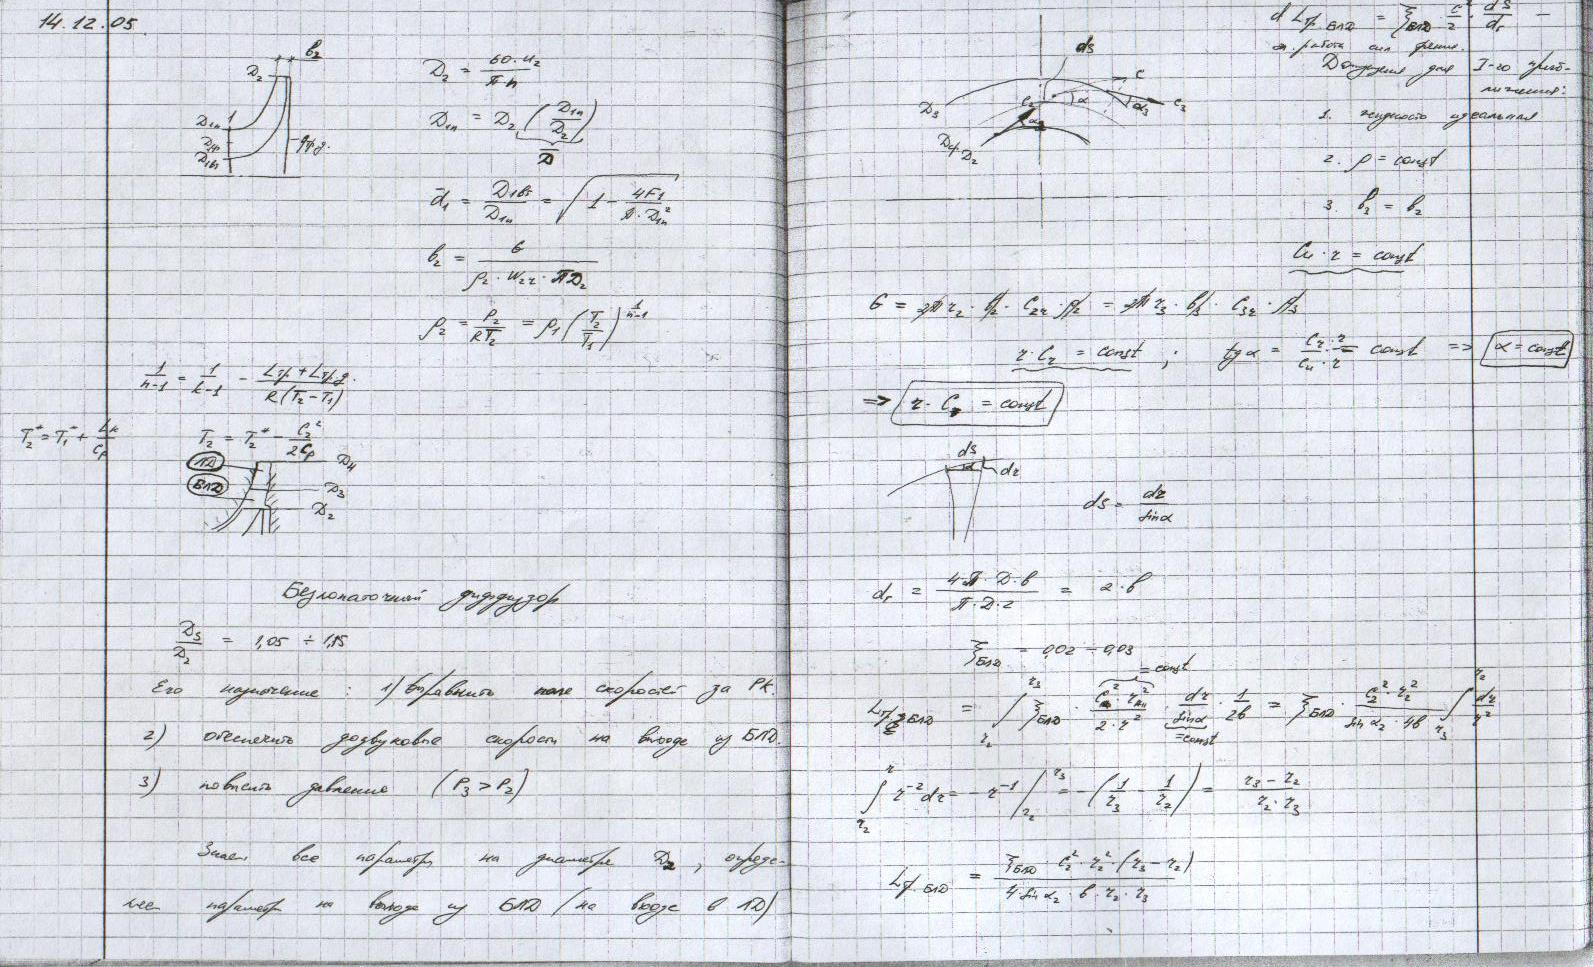 14.12.05
b₂
D₂
D₁п
D₁ср
D₁вт
D₂ = 60·u₂ / π·n
D₁п = D₂ (D₁п / D₂)
D̄
d̄₁ = D₁вт / D₁п = √(1 − 4F₁ / π·D₁п²)
b₂ = G / ρ₂·w₂r·πD₂
ρ₂ = P₂ / RT₂ = ρ₁ (T₂ / T₁)^(1/(n−1))
1/(n−1) = 1/(k−1) − (Lтр + Lтр д.) / R(T₂−T₁)
T₂* = T₁* + Lк / Cp
T₂ = T₂* − C₂² / 2Cp
ЛД
БЛД
D₄
D₃
D₂
Безлопаточный диффузор
D₃ / D₂ = 1,05 ÷ 1,15
Его назначение : 1) выравнить поле скоростей за РК.
2) обеспечить дозвуковые скорости на выходе из БЛД.
3) повысить давление (P₃ > P₂)
Знаем все параметры на диаметре D₂, опреде-
ляем параметры на выходе из БЛД (на входе в ЛД)
dLтр БЛД = ξБЛД C²/2 · dS/dг
работа сил трения.
Допущения для I-го приб-
лижения:
1. жидкость идеальная
2. ρ = const
3. b₃ = b₂
dS
C
C₃
α
α₃
C₂
α₂
D₃
D₂
Cu · r = const
G = 2πr₂ · b₂ · C₂r · ρ₂ = 2πr₃ · b₃ · C₃r · ρ₃
r · Cr = const ; tgα = Cr·r / Cu·r = const => α = const
=> r · C = const
dS
α
dr
dS = dr / sinα
dг = 4·π·D·b / π·D·2 = 2·b
ξБЛД = 0,02 ÷ 0,03
= const
Lтр БЛД = ∫ r₂ r₃ ξБЛД · C₂²·r₂² / 2·r² · dr / sinα · 1/2b = ξБЛД · C₂²·r₂² / sinα₂·4b ∫ r₃ r₂ dr / r²
= const
∫ r₂ r r⁻²dr = − r⁻¹ | r₂ r₃ = −(1/r₃ − 1/r₂) = (r₃ − r₂) / r₂·r₃
Lтр БЛД = ξБЛД · C₂² · r₂² (r₃ − r₂) / 4·sinα₂·b·r₂·r₃